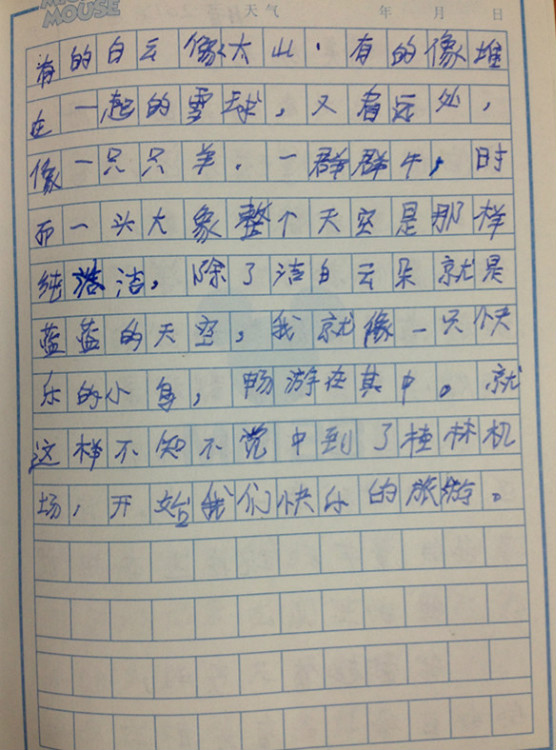 MOUSE
天气 年 月 日
有的白云像大山，有的像堆
在一起的雪球，又看远处，
像一只只羊，一群群牛，时
而一头大象整个天空是那样
纯洁，除了洁白云朵就是
蓝蓝的天空，我就像一只快
乐的小鸟，畅游在其中。就
这样不知不觉中到了桂林机
场，开始我们快乐的旅游。